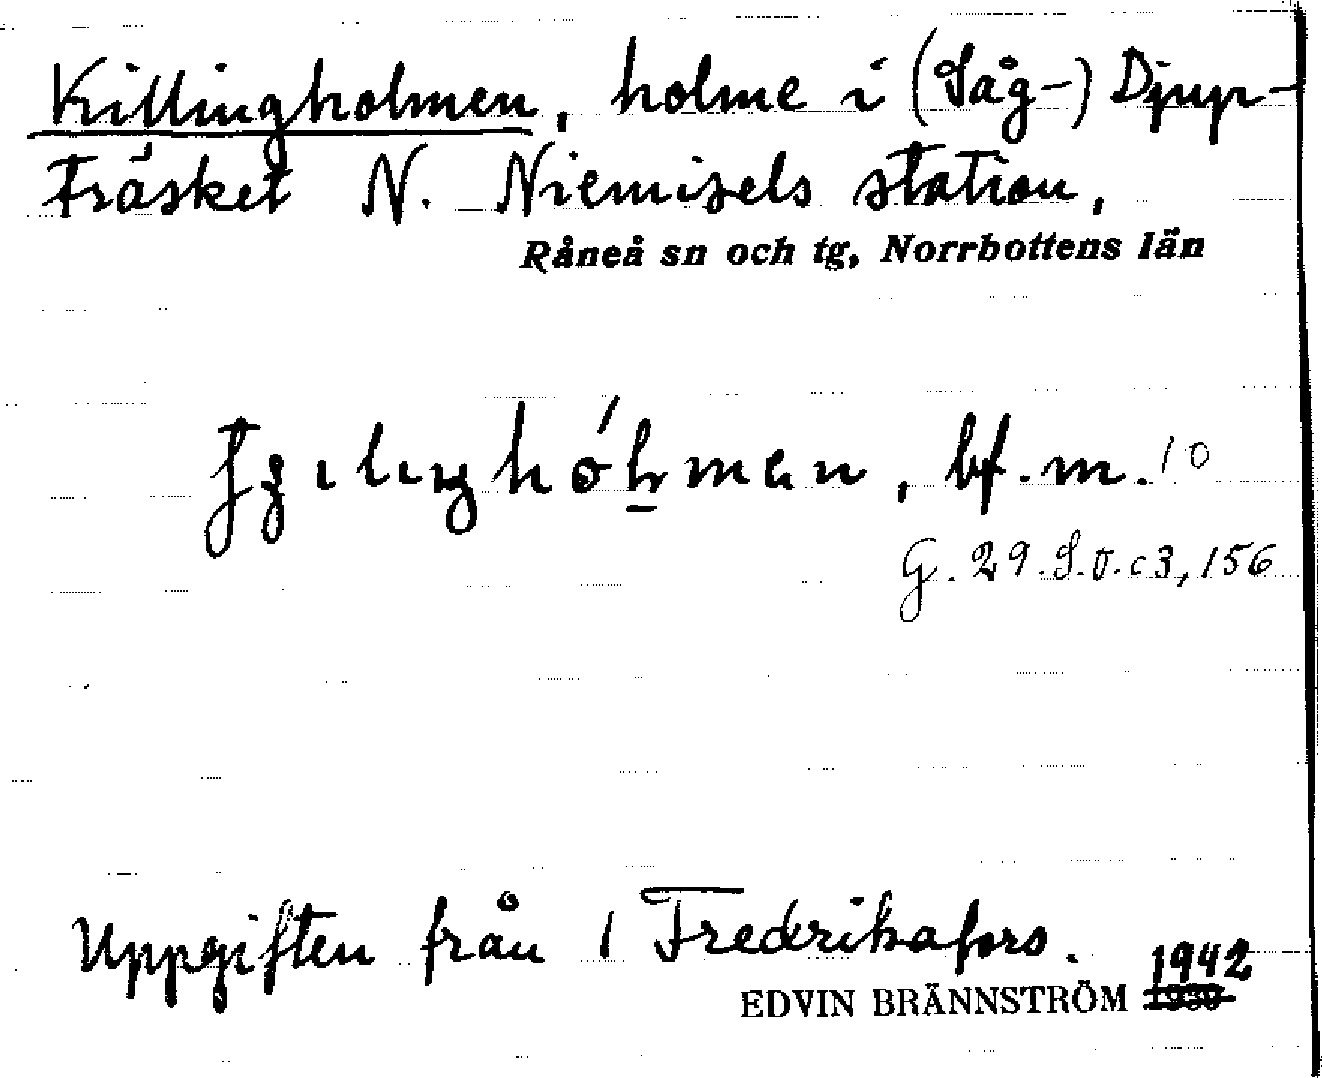 Killingholmen, holme i (Såg-) Djup-
träsket N. Niemisels station,
Råneå sn och tg, Norrbottens län
bf. m. 10
G. 29. S. v. c3, 156
Uppgiften från 1 Fredrikafors.
EDVIN BRÄNNSTRÖM 1942
1930